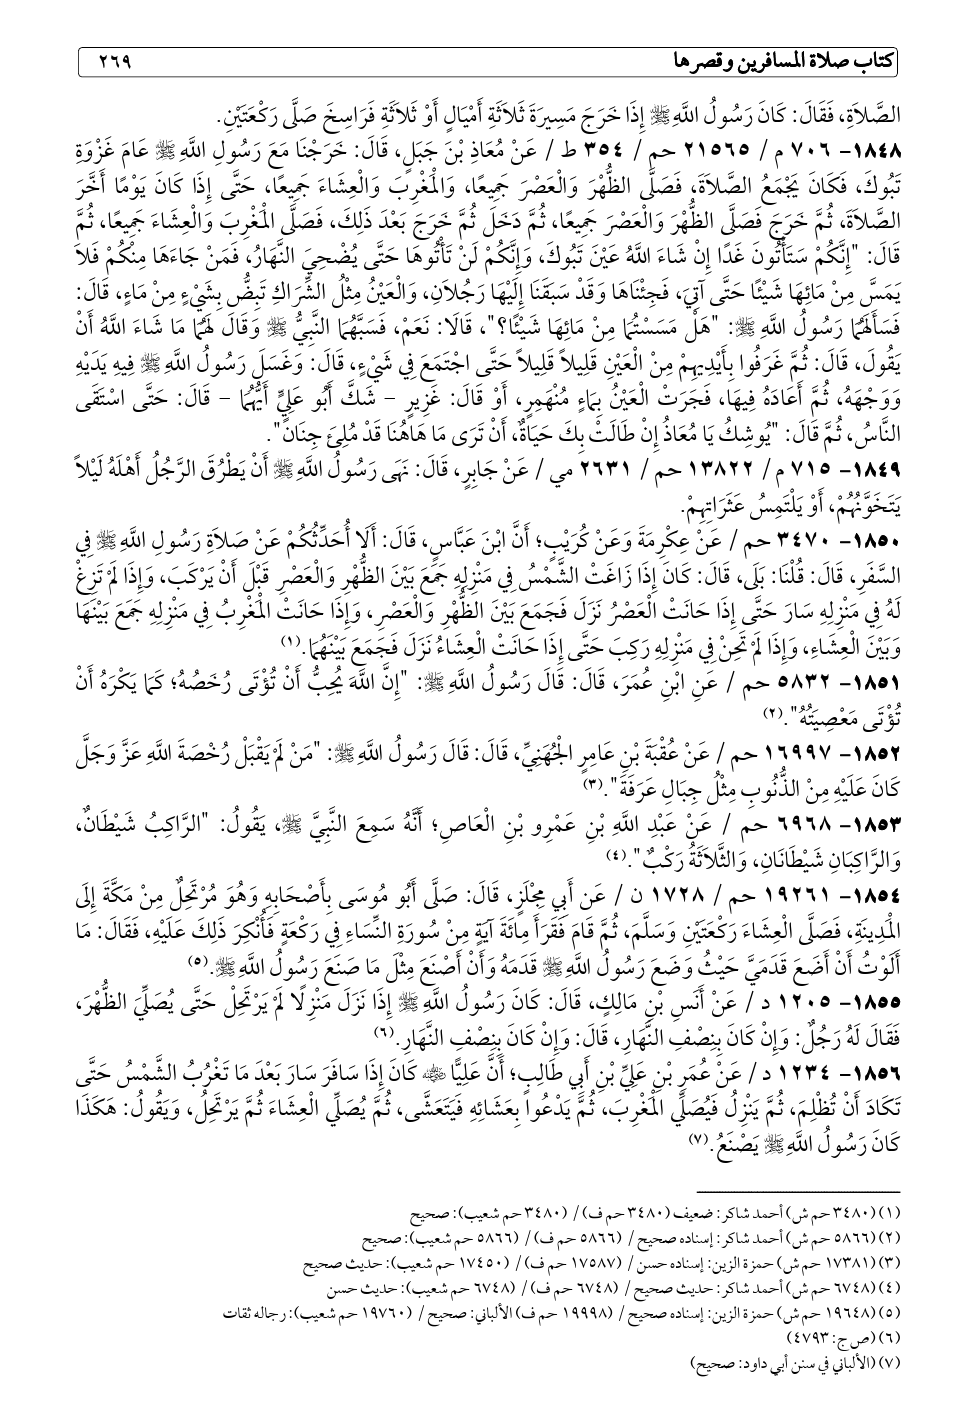 كتاب صلاة المسافرين وقصرها ٢٦٩
الصَّلاَةِ، فَقَالَ: كَانَ رَسُولُ اللَّهِ ﷺ إِذَا خَرَجَ مَسِيرَةَ ثَلاَثَةِ أَمْيَالٍ أَوْ ثَلاَثَةِ فَرَاسِخَ صَلَّى رَكْعَتَيْنِ.
١٨٤٨- ٧٠٦ م / ٢١٥٦٥ حم / ٣٥٤ ط / عَنْ مُعَاذِ بْنَ جَبَلٍ، قَالَ: خَرَجْنَا مَعَ رَسُولِ اللَّهِ ﷺ عَامَ غَزْوَةِ
تَبُوكَ، فَكَانَ يَجْمَعُ الصَّلاَةَ، فَصَلَّى الظُّهْرَ وَالْعَصْرَ جَمِيعًا، وَالْمَغْرِبَ وَالْعِشَاءَ جَمِيعًا، حَتَّى إِذَا كَانَ يَوْمًا أَخَّرَ
الصَّلاَةَ، ثُمَّ خَرَجَ فَصَلَّى الظُّهْرَ وَالْعَصْرَ جَمِيعًا، ثُمَّ دَخَلَ ثُمَّ خَرَجَ بَعْدَ ذَلِكَ، فَصَلَّى الْمَغْرِبَ وَالْعِشَاءَ جَمِيعًا، ثُمَّ
قَالَ: "إِنَّكُمْ سَتَأْتُونَ غَدًا إِنْ شَاءَ اللَّهُ عَيْنَ تَبُوكَ، وَإِنَّكُمْ لَنْ تَأْتُوهَا حَتَّى يُضْحِيَ النَّهَارُ، فَمَنْ جَاءَهَا مِنْكُمْ فَلاَ
يَمَسَّ مِنْ مَائِهَا شَيْئًا حَتَّى آتِيَ، فَجِئْنَاهَا وَقَدْ سَبَقَنَا إِلَيْهَا رَجُلاَنِ، وَالْعَيْنُ مِثْلُ الشِّرَاكِ تَبِضُّ بِشَيْءٍ مِنْ مَاءٍ، قَالَ:
فَسَأَلَهُمَا رَسُولُ اللَّهِ ﷺ: "هَلْ مَسَسْتُمَا مِنْ مَائِهَا شَيْئًا؟"، قَالَا: نَعَمْ، فَسَبَّهُمَا النَّبِيُّ ﷺ وَقَالَ لَهُمَا مَا شَاءَ اللَّهُ أَنْ
يَقُولَ، قَالَ: ثُمَّ غَرَفُوا بِأَيْدِيهِمْ مِنْ الْعَيْنِ قَلِيلاً قَلِيلاً حَتَّى اجْتَمَعَ فِي شَيْءٍ، قَالَ: وَغَسَلَ رَسُولُ اللَّهِ ﷺ فِيهِ يَدَيْهِ
وَوَجْهَهُ، ثُمَّ أَعَادَهُ فِيهَا، فَجَرَتْ الْعَيْنُ بِمَاءٍ مُنْهَمِرٍ، أَوْ قَالَ: غَزِيرٍ – شَكَّ أَبُو عَلِيٍّ أَيُّهُمَا – قَالَ: حَتَّى اسْتَقَى
النَّاسُ، ثُمَّ قَالَ: "يُوشِكُ يَا مُعَاذُ إِنْ طَالَتْ بِكَ حَيَاةٌ، أَنْ تَرَى مَا هَاهُنَا قَدْ مُلِئَ جِنَانً".
١٨٤٩- ٧١٥ م / ١٣٨٢٢ حم / ٢٦٣١ مي / عَنْ جَابِرٍ، قَالَ: نَهَى رَسُولُ اللَّهِ ﷺ أَنْ يَطْرُقَ الرَّجُلُ أَهْلَهُ لَيْلاً
يَتَخَوَّنُهُمْ، أَوْ يَلْتَمِسُ عَثَرَاتِهِمْ.
١٨٥٠- ٣٤٧٠ حم / عَنْ عِكْرِمَةَ وَعَنْ كُرَيْبٍ؛ أَنَّ ابْنَ عَبَّاسٍ، قَالَ: أَلَا أُحَدِّثُكُمْ عَنْ صَلاَةِ رَسُولِ اللَّهِ ﷺ فِي
السَّفَرِ، قَالَ: قُلْنَا: بَلَى، قَالَ: كَانَ إِذَا زَاغَتْ الشَّمْسُ فِي مَنْزِلِهِ جَمَعَ بَيْنَ الظُّهْرِ وَالْعَصْرِ قَبْلَ أَنْ يَرْكَبَ، وَإِذَا لَمْ تَزِغْ
لَهُ فِي مَنْزِلِهِ سَارَ حَتَّى إِذَا حَانَتْ الْعَصْرُ نَزَلَ فَجَمَعَ بَيْنَ الظُّهْرِ وَالْعَصْرِ، وَإِذَا حَانَتْ الْمَغْرِبُ فِي مَنْزِلِهِ جَمَعَ بَيْنَهَا
وَبَيْنَ الْعِشَاءِ، وَإِذَا لَمْ تَحِنْ فِي مَنْزِلِهِ رَكِبَ حَتَّى إِذَا حَانَتْ الْعِشَاءُ نَزَلَ فَجَمَعَ بَيْنَهُمَا.(١)
١٨٥١- ٥٨٣٢ حم / عَنِ ابْنِ عُمَرَ، قَالَ: قَالَ رَسُولُ اللَّهِ ﷺ: "إِنَّ اللَّهَ يُحِبُّ أَنْ تُؤْتَى رُخَصُهُ؛ كَمَا يَكْرَهُ أَنْ
تُؤْتَى مَعْصِيَتُهُ".(٢)
١٨٥٢- ١٦٩٩٧ حم / عَنْ عُقْبَةَ بْنِ عَامِرٍ الْجُهَنِيِّ، قَالَ: قَالَ رَسُولُ اللَّهِ ﷺ: "مَنْ لَمْ يَقْبَلْ رُخْصَةَ اللَّهِ عَزَّ وَجَلَّ
كَانَ عَلَيْهِ مِنْ الذُّنُوبِ مِثْلُ جِبَالِ عَرَفَةَ".(٣)
١٨٥٣- ٦٩٦٨ حم / عَنْ عَبْدِ اللَّهِ بْنِ عَمْرِو بْنِ الْعَاصِ؛ أَنَّهُ سَمِعَ النَّبِيَّ ﷺ، يَقُولُ: "الرَّاكِبُ شَيْطَانٌ،
وَالرَّاكِبَانِ شَيْطَانَانِ، وَالثَّلاَثَةُ رَكْبٌ".(٤)
١٨٥٤- ١٩٢٦١ حم / ١٧٢٨ ن / عَن أَبِي مِجْلَزٍ، قَالَ: صَلَّى أَبُو مُوسَى بِأَصْحَابِهِ وَهُوَ مُرْتَحِلٌ مِنْ مَكَّةَ إِلَى
الْمَدِينَةِ، فَصَلَّى الْعِشَاءَ رَكْعَتَيْنِ وَسَلَّمَ، ثُمَّ قَامَ فَقَرَأَ مِائَةَ آيَةٍ مِنْ سُورَةِ النِّسَاءِ فِي رَكْعَةٍ فَأُنْكِرَ ذَلِكَ عَلَيْهِ، فَقَالَ: مَا
أَلَوْتُ أَنْ أَضَعَ قَدَمَيَّ حَيْثُ وَضَعَ رَسُولُ اللَّهِ ﷺ قَدَمَهُ وَأَنْ أَصْنَعَ مِثْلَ مَا صَنَعَ رَسُولُ اللَّهِ ﷺ.(٥)
١٨٥٥- ١٢٠٥ د / عَنْ أَنَسِ بْنِ مَالِكٍ، قَالَ: كَانَ رَسُولُ اللَّهِ ﷺ إِذَا نَزَلَ مَنْزِلًا لَمْ يَرْتَحِلْ حَتَّى يُصَلِّيَ الظُّهْرَ،
فَقَالَ لَهُ رَجُلٌ: وَإِنْ كَانَ بِنِصْفِ النَّهَارِ، قَالَ: وَإِنْ كَانَ بِنِصْفِ النَّهَارِ.(٦)
١٨٥٦- ١٢٣٤ د / عَنْ عُمَرِ بْنِ عَلِيِّ بْنِ أَبِي طَالِبٍ؛ أَنَّ عَلِيًّا ﵁ كَانَ إِذَا سَافَرَ سَارَ بَعْدَ مَا تَغْرُبُ الشَّمْسُ حَتَّى
تَكَادَ أَنْ تُظْلِمَ، ثُمَّ يَنْزِلُ فَيُصَلِّي الْمَغْرِبَ، ثُمَّ يَدْعُوا بِعَشَائِهِ فَيَتَعَشَّى، ثُمَّ يُصَلِّي الْعِشَاءَ ثُمَّ يَرْتَحِلُ، وَيَقُولُ: هَكَذَا
كَانَ رَسُولُ اللَّهِ ﷺ يَصْنَعُ.(٧)
(١) (٣٤٨٠ حم ش) أحمد شاكر: ضعيف (٣٤٨٠ حم ف) / (٣٤٨٠ حم شعيب): صحيح
(٢) (٥٨٦٦ حم ش) أحمد شاكر: إسناده صحيح / (٥٨٦٦ حم ف) / (٥٨٦٦ حم شعيب): صحيح
(٣) (١٧٣٨١ حم ش) حمزة الزين: إسناده حسن / (١٧٥٨٧ حم ف) / (١٧٤٥٠ حم شعيب): حديث صحيح
(٤) (٦٧٤٨ حم ش) أحمد شاكر: حديث صحيح / (٦٧٤٨ حم ف) / (٦٧٤٨ حم شعيب): حديث حسن
(٥) (١٩٦٤٨ حم ش) حمزة الزين: إسناده صحيح / (١٩٩٩٨ حم ف) الألباني: صحيح / (١٩٧٦٠ حم شعيب): رجاله ثقات
(٦) (ص ج: ٤٧٩٣)
(٧) (الألباني في سنن أبي داود: صحيح)